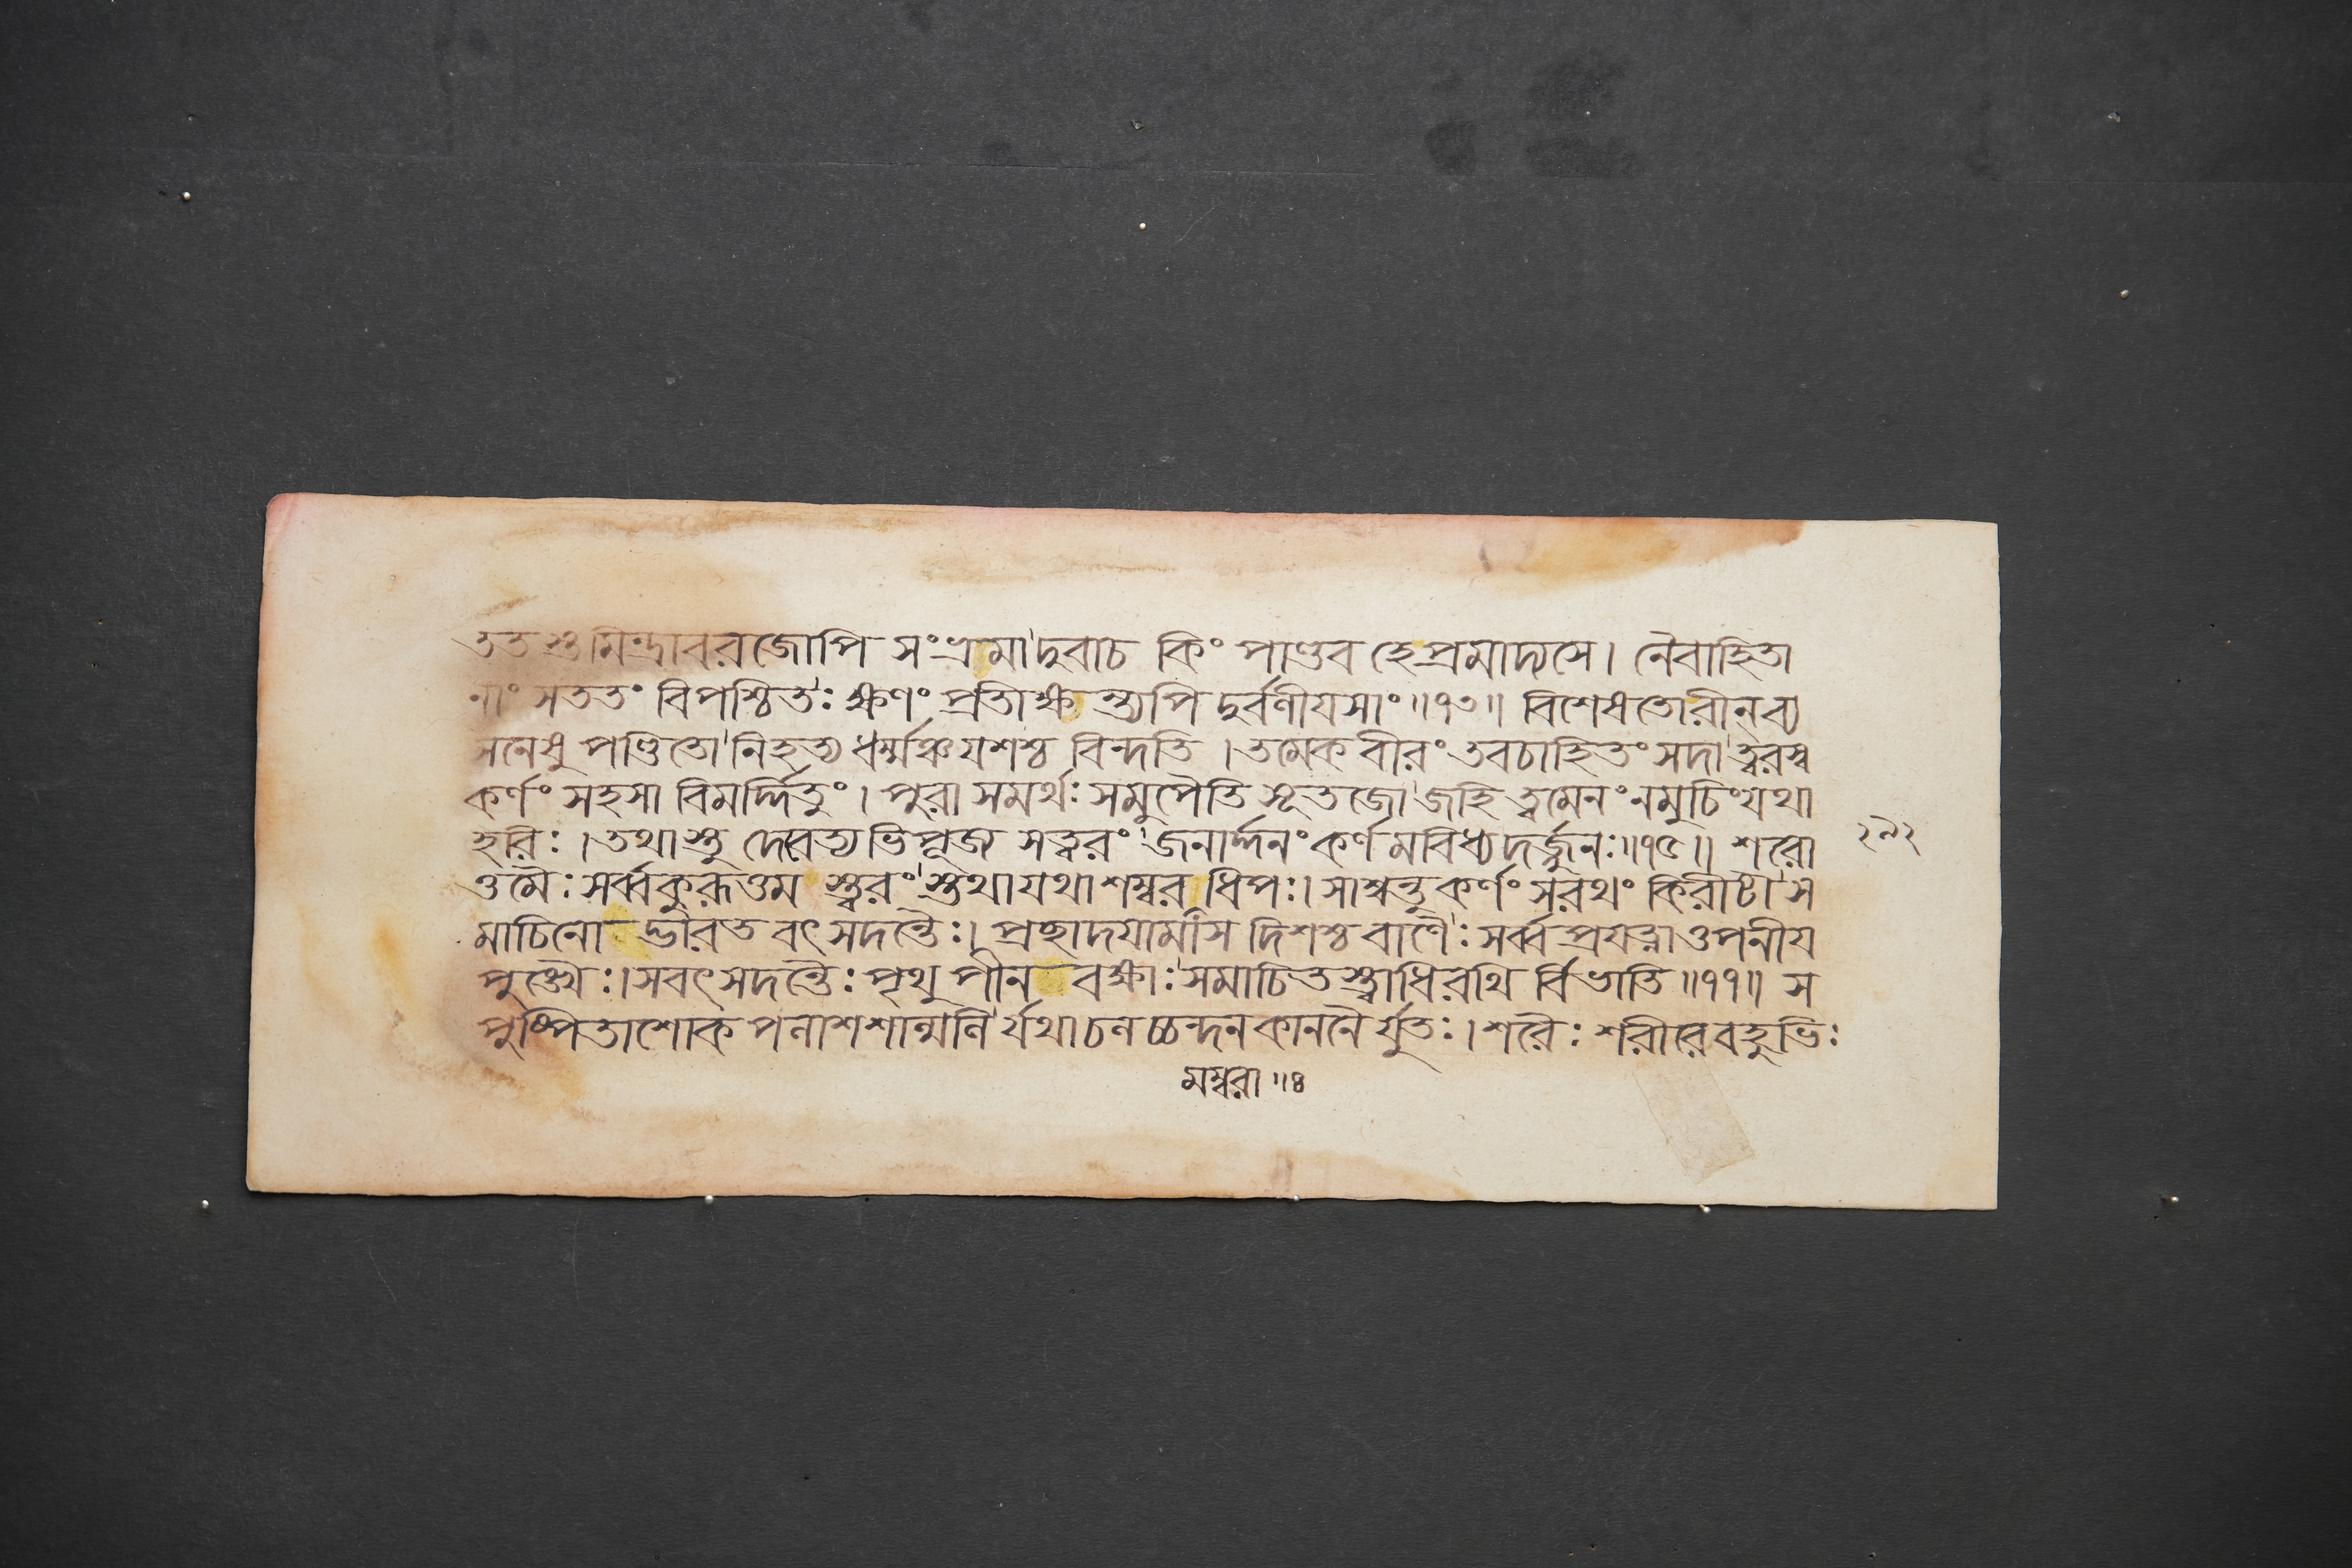 ততস্তুমিন্দ্রাবরজোপি সংভ্রমাদুবাচ কিং পাণ্ডব হে প্রমাদ্যসে। নৈবাহিতা
নাং সততং বিপশ্চিতঃ ক্ষণং প্রতিাক্ষ ন্ত্যপি দুর্বণীযসাং॥৭৩॥ বিশেষতোরীন্ ব্য
সনেষু পণ্ডিতো নিহত্য ধর্ম্মঞ্চযশশ্চ বিন্দতি। তমেকবীরং তবচাহিতং সদা ত্বরস্ব
কর্ণং সহসা বিমর্দ্দিতুং। পুরা সমর্থঃ সমুপৈতি সূতজো জহি ত্বমেনং নমুচিং যথা
হরিঃ। তথাস্তু দেবেত্যভিপূজ্য সত্বরং জনার্দ্দনং কর্ণমবিধ্যদর্জ্জুনঃ॥৭৫॥ শরো
ত্তমৈঃ সর্ব্বকুরূত্তম স্ত্বরং স্তথাযথাশম্বর ধিপঃ। সাশ্বন্তুকর্ণং সরথং কিরীটী স
মাচিনো দ্ভারত বৎসদন্তৈঃ। প্রচ্ছাদযামাস দিশশ্চ বাণৈঃ সর্ব্বপ্রযত্নাত্তপনীয
পুঙ্খৈঃ। সবৎসদন্তৈঃ পৃথুপীন বক্ষাঃ সমাচিতস্ত্বাধিরথি র্বিভাতি॥৭৭॥ স
পুষ্পিতাশোক পলাশশাল্মলি র্যথাচলচ্চন্দনকাননৈর্যুতঃ। শরৈঃ শরীরেবহুভিঃ
মম্বরা॥৪
২৯২